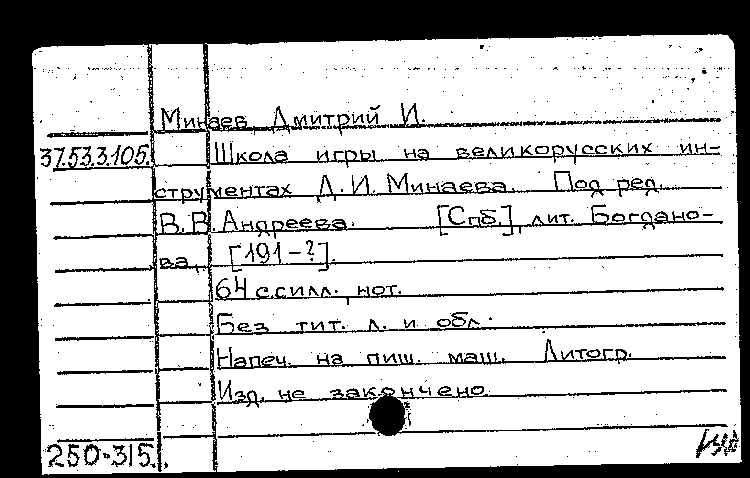 Минаев, Дмитрий И.
37.53.3.105. Школа игры на великорусских ин-
струментах Д.И. Минаева. Под ред.
В.В. Андреева. [Спб.], лит. Богдано-
ва, [191-?].
64 с. с илл., нот.
Без тит. л. и обл.
Напеч. на пиш. маш. Литогр.
Изд. не закончено.
250-315.